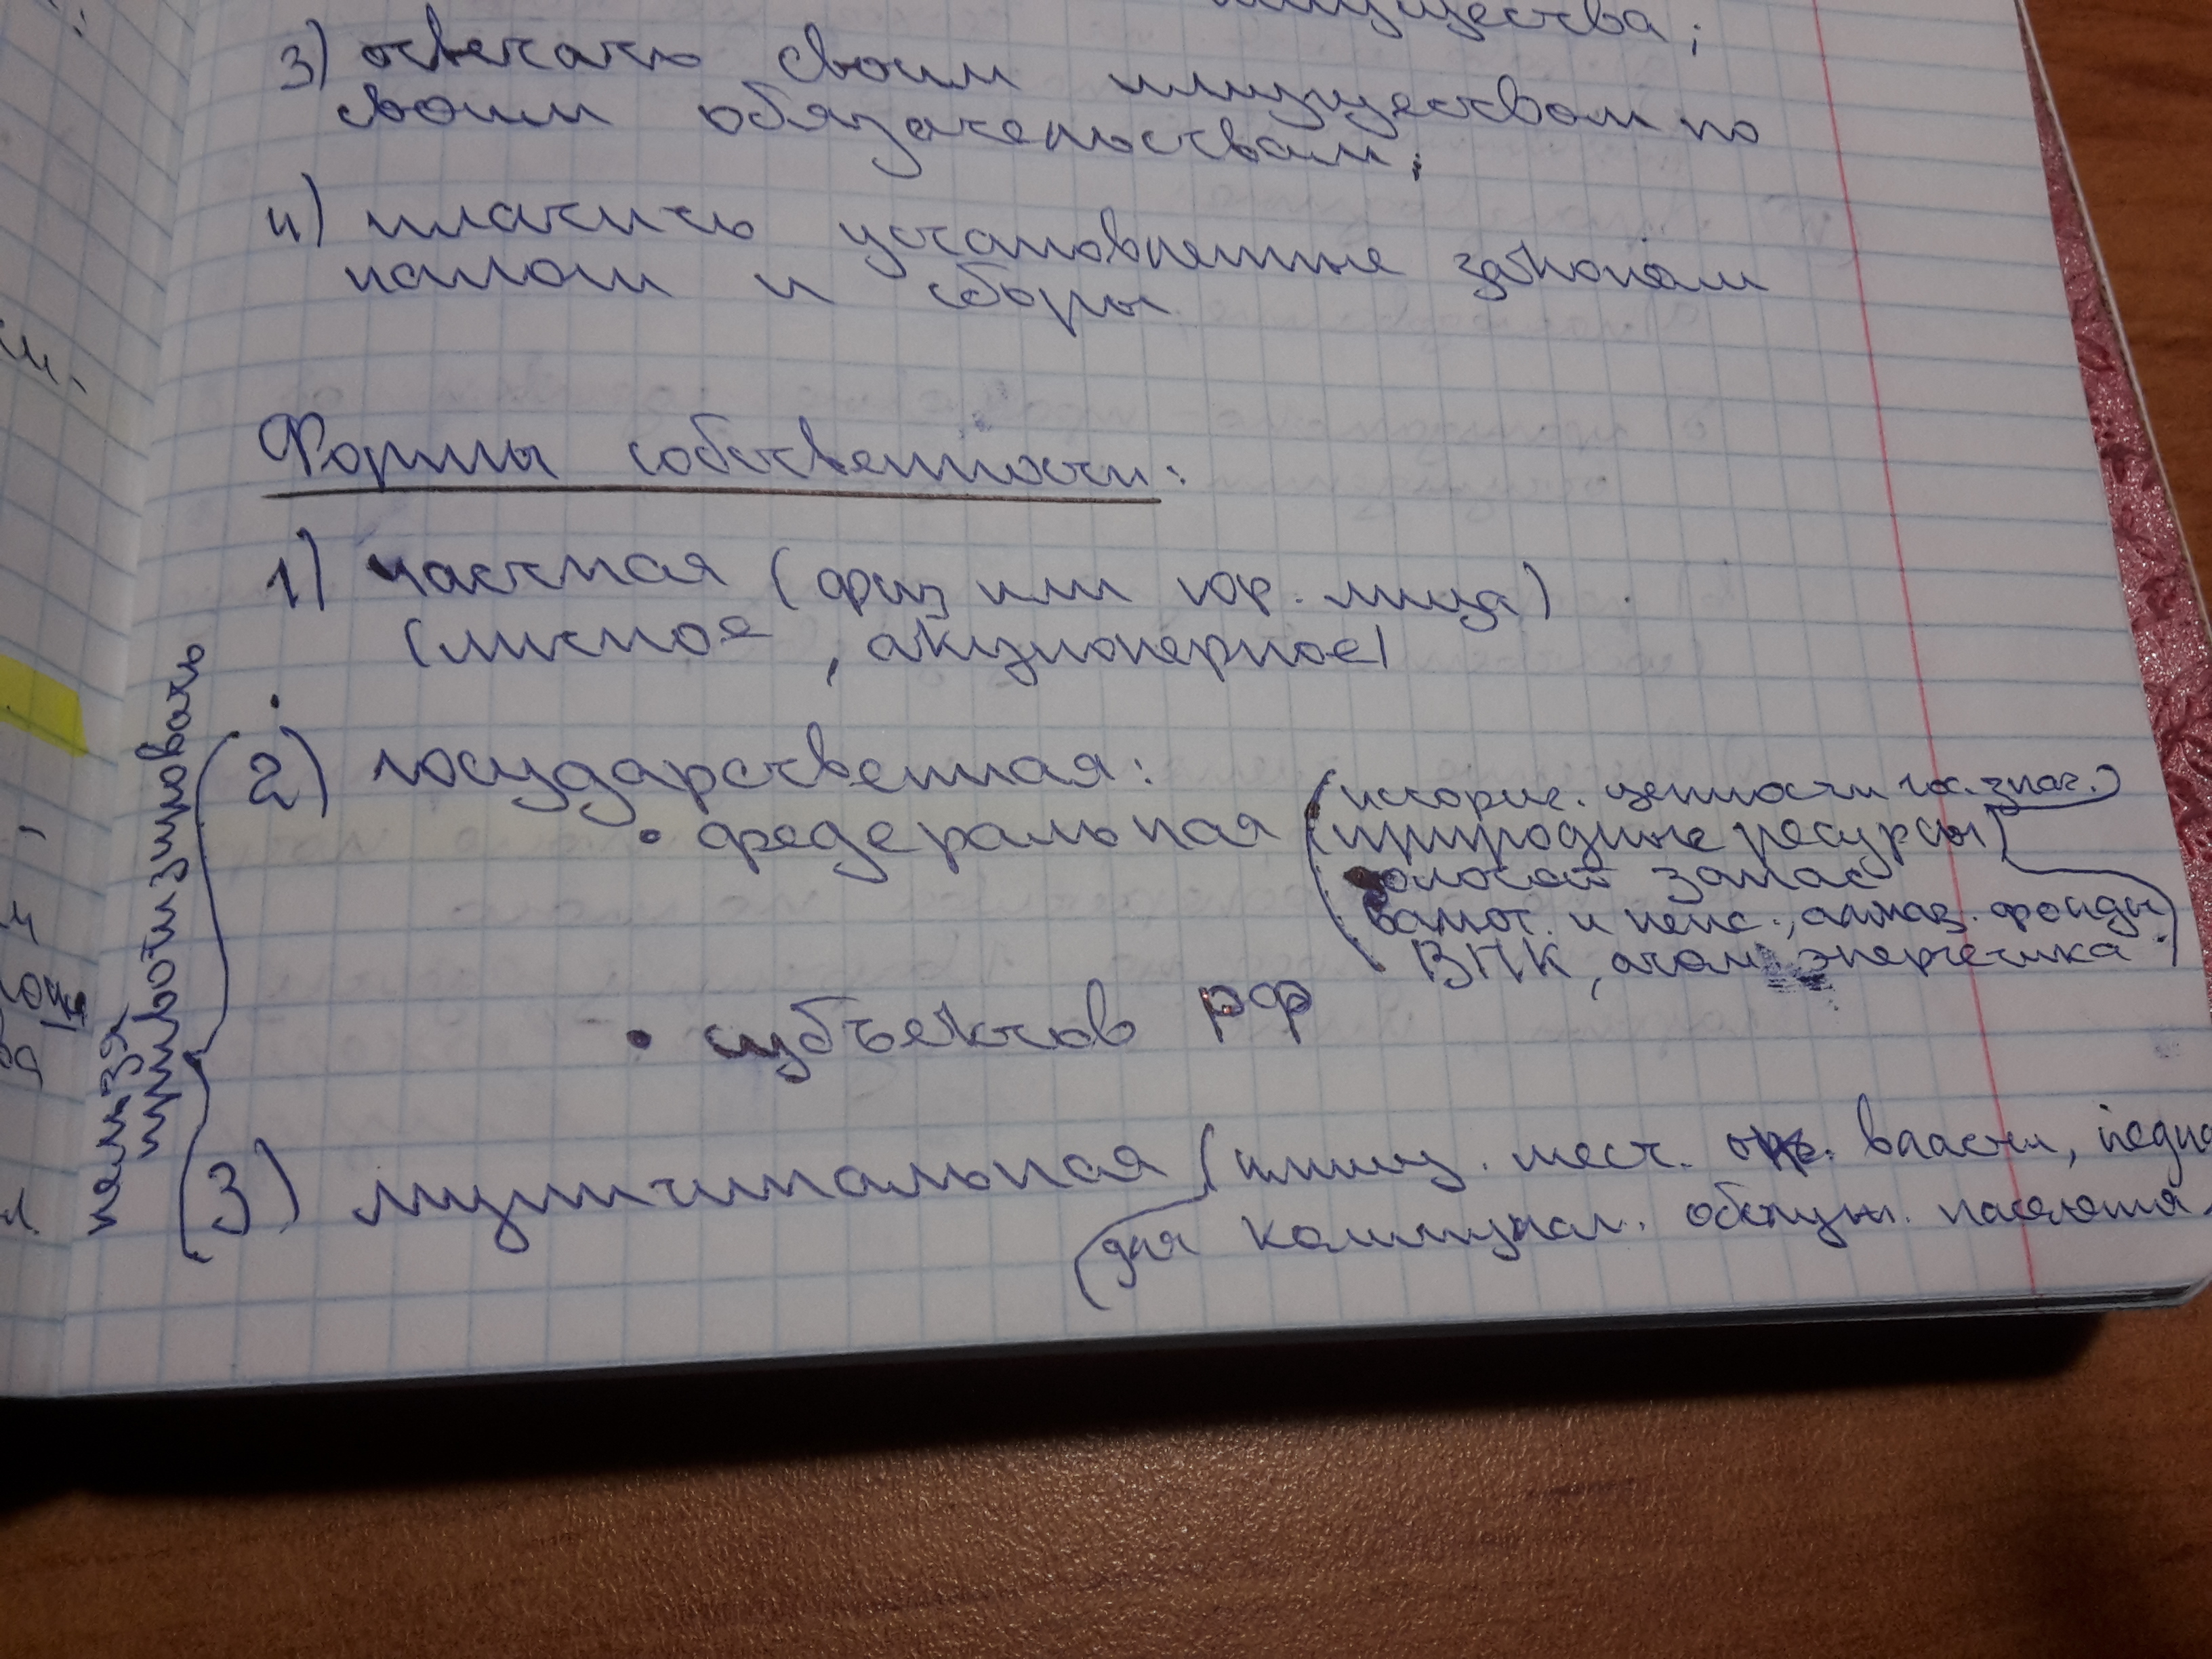 имущества;
3) отвечать своим имуществом по
своим обязательствам;
4) платить установленные законом
налоги и сборы
Формы собственности:
1) частная (физ или юр. лица)
(личное, акционерное)
2) государственная:
• федеральная (историч. ценности гос. знач.)
(природные ресурсы)
золотой запас
валют. и пенс., алмаз. фонды
ВПК, атом. энергетика
• субъектов РФ
3) муниципальная (имущ. мест. орг. власти,
для коммунал. обслуж. населения
нельзя
приватизировать